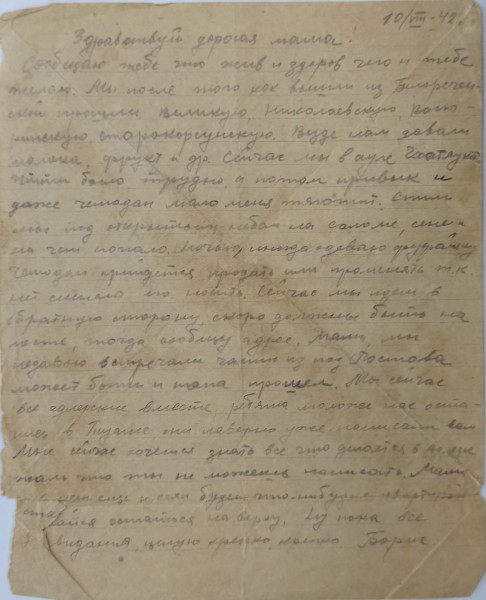 10/VIII-42 г.
Здравствуй дорогая мама!
Сообщаю тебе что жив и здоров чего и тебе
желаю. Мы после того как вышли из Белоречен-
ской прошли Великую, Николаевскую,
старокорсунскую. Везде нам давали
молоко, фрукт и др. Сейчас мы в ауле
Итти было трудно, а потом привык и
даже чемодан мало меня тяготит. Спим
мы под открытым небом на соломе, сене
на чем попало. Ночью, иногда одеваю фуфайку
Чемодан придется продать или променять т.к.
нет смысла его носить. Сейчас мы идем в
обратную сторону, скоро должны быть на
месте, тогда сообщу адрес. Мама, мы
недавно встречали части из под Ростова
может быть и папа прошел. Мы сейчас
все вместе, ребята моложе нас оста-
лись в они наверно уже написали вам
Мне сейчас хочется знать все что делается в
жаль что ты не можешь написать. Мама
еще и если будет что нибудь с квартирой
старайся остаться на верху. Ну пока все
До свидания, целую крепко, крепко Борис